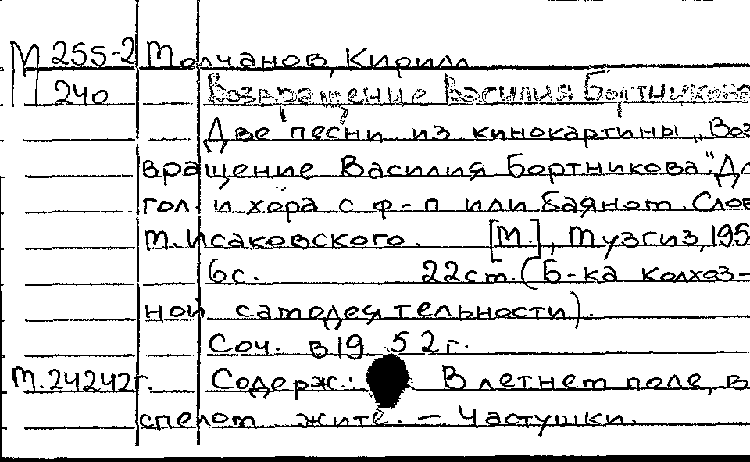 М 255-2 Молчанов, Кирилл
240 Возвращение Василия Бортникова
Две песни из кинокартины „Воз
вращение Василия Бортникова." Дл
гол. и хора с ф-п или баяном. Слов
М. Исаковского. [М.], Музгиз, 195
6с. 22см. (Б-ка колхоз-
ной самодеятельности).
Соч. в 1952г.
М.24242г. Содерж.: В летнем поле, в
спелом жите. – Частушки.